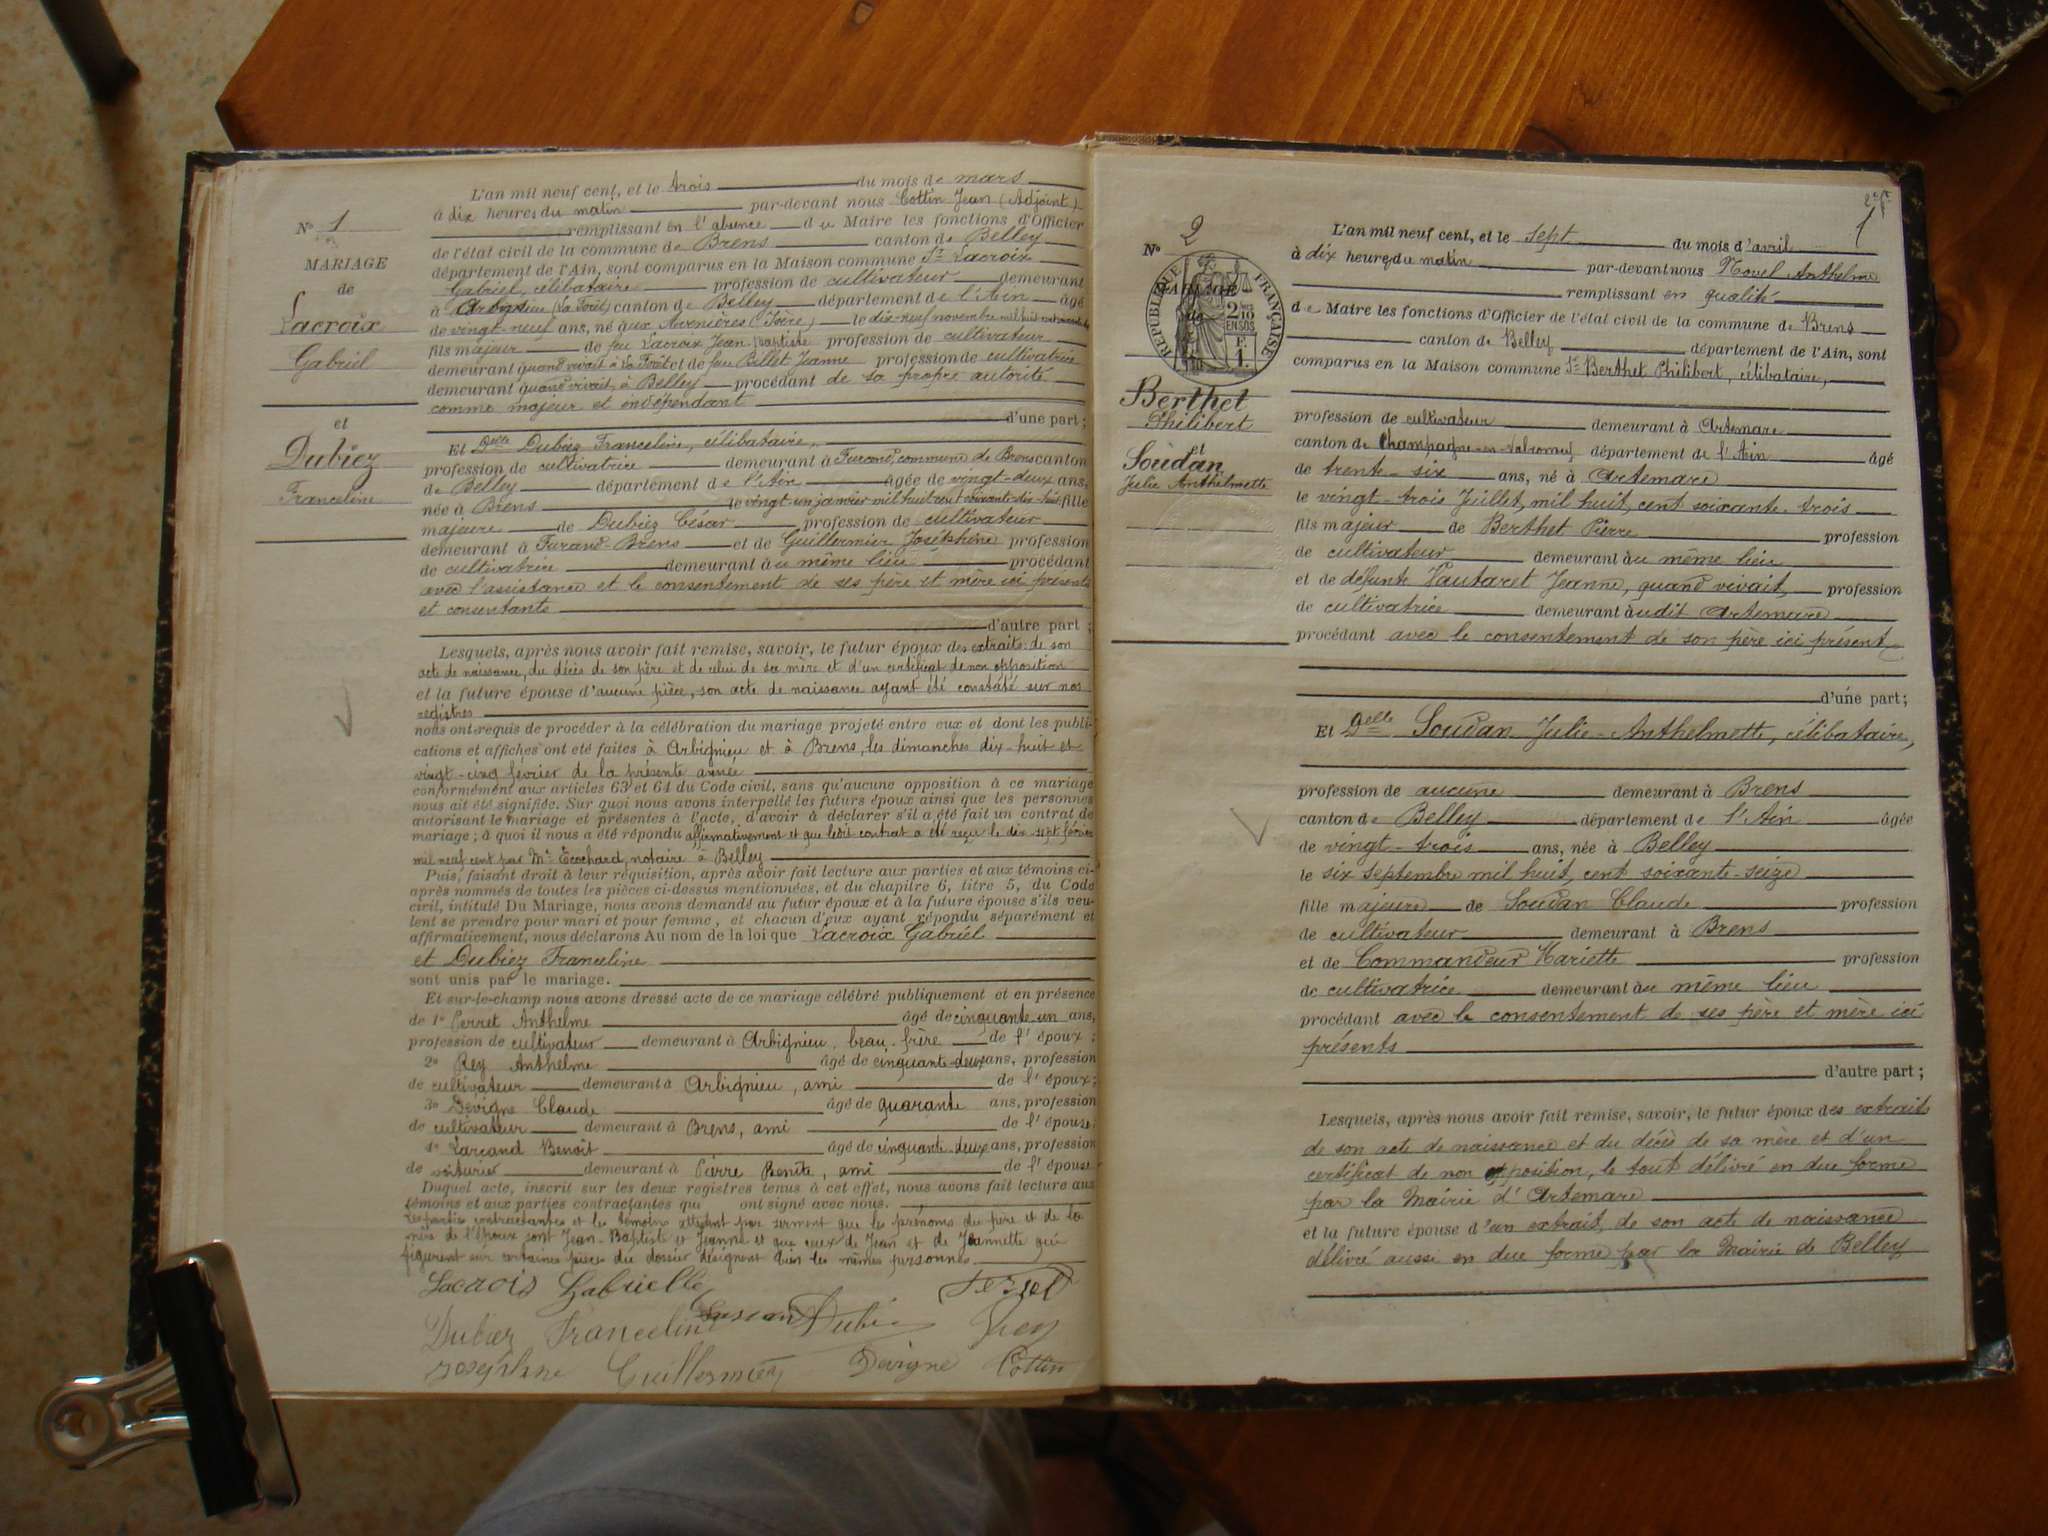 N° 1
MARIAGE
de
Lacroix
Gabriel
et
Dubiez
Franceline
L'an mil neuf cent, et le trois du mois de mars
à dix heures du matin par-devant nous Cottin Jean (Adjoint)
remplissant en l'absence du Maire les fonctions d'Officier
de l'état civil de la commune de Brens canton de Belley
département de l'Ain, sont comparus en la Maison commune Sr Lacroix
Gabriel, célibataire profession de cultivateur demeurant
à Arbignieu (La Forêt) canton de Belley département de l'Ain âgé
de vingt-neuf ans, né aux Avenières (Isère) le dix-neuf novembre mil huit cent
fils majeur de feu Lacroix Jean-Baptiste profession de cultivateur
demeurant quand vivait à La Forêt et de feu Billet Jeanne profession de cultivatrice
demeurant quand vivait, à Belley procédant de sa propre autorité
comme majeur et indépendant
d'une part;
Et Delle Dubiez Franceline, célibataire,
profession de cultivatrice demeurant à Furand, commune de Brens canton
de Belley département de l'Ain âgée de vingt-deux ans,
née à Brens le vingt-un janvier mil huit cent soixante-dix-huit fille
majeure de Dubiez César profession de cultivateur
demeurant à Furand-Brens et de Guillermier Joséphine profession
de cultivatrice demeurant au même lieu procédant
avec l'assistance et le consentement de ses père et mère ici présents
et consentants
d'autre part;
Lesquels, après nous avoir fait remise, savoir, le futur époux des extraits: de son
acte de naissance, du décès de son père et de celui de sa mère et d'un certificat de non opposition
et la future épouse d'aucune pièce, son acte de naissance ayant été constaté sur nos
registres
nous ont requis de procéder à la célébration du mariage projeté entre eux et dont les publi-
cations et affiches ont été faites à Arbignieu et à Brens, les dimanches dix-huit et
vingt-cinq février de la présente année
conformément aux articles 63 et 64 du Code civil, sans qu'aucune opposition à ce mariage
nous ait été signifiée. Sur quoi nous avons interpellé les futurs époux ainsi que les personnes
autorisant le mariage et présentes à l'acte, d'avoir à déclarer s'il a été fait un contrat de
mariage; à quoi il nous a été répondu affirmativement et que ledit contrat a été reçu le dix-sept février
mil neuf cent par Me Ecochard, notaire à Belley
Puis, faisant droit à leur réquisition, après avoir fait lecture aux parties et aux témoins ci-
après nommés de toutes les pièces ci-dessus mentionnées, et du chapitre 6, titre 5, du Code
civil, intitulé Du Mariage, nous avons demandé au futur époux et à la future épouse s'ils veu-
lent se prendre pour mari et pour femme, et chacun d'eux ayant répondu séparément et
affirmativement, nous déclarons Au nom de la loi que Lacroix Gabriel
et Dubiez Franceline
sont unis par le mariage.
Et sur-le-champ nous avons dressé acte de ce mariage célébré publiquement et en présence
de 1° Perret Anthelme âgé de cinquante-un ans,
profession de cultivateur demeurant à Arbignieu, beau-frère de l'époux;
2° Rey Anthelme âgé de cinquante-deux ans, profession
de cultivateur demeurant à Arbignieu, ami de l'époux;
3° Devigne Claude âgé de quarante ans, profession
de cultivateur demeurant à Brens, ami de l'épouse;
4° Benoît âgé de cinquante-deux ans, profession
de voiturier demeurant à Pierre Bénite, ami de l'épouse
Duquel acte, inscrit sur les deux registres tenus à cet effet, nous avons fait lecture aux
témoins et aux parties contractantes qui ont signé avec nous.
Les parties contractantes et les témoins attestent par serment que les prénoms du père et de la
mère de l'époux sont Jean-Baptiste et Jeanne et que ceux de Jean et de Jeannette qui
figurent sur certaines pièces du dossier désignent bien les mêmes personnes
Lacroix Gabrielle Perret
Dubiez Franceline Dubiez Rey
Joséphine Guillermier Devigne Cottin
2eft
1
N° 2
RÉPUBLIQUE FRANÇAISE
MARIAGE
de
2 10
EN SUS
F.
1.
Berthet
Philibert
et
Soudan
Julie Anthelmette
L'an mil neuf cent, et le sept du mois d'avril
à dix heures du matin par-devant nous Novel Anthelme
remplissant en qualité
de Maire les fonctions d'Officier de l'état civil de la commune de Brens
canton de Belley département de l'Ain, sont
comparus en la Maison commune Sr Berthet Philibert, célibataire,
profession de cultivateur demeurant à Artemare
canton de Champagne-en-Valromey département de l'Ain âgé
de trente-six ans, né à Artemare
le vingt-trois Juillet, mil huit cent soixante-trois
fils majeur de Berthet Pierre profession
de cultivateur demeurant au même lieu
et de défunte Vautaret Jeanne, quand vivait, profession
de cultivatrice demeurant audit Artemare
procédant avec le consentement de son père ici présent
d'une part;
Et Delle Soudan Julie-Anthelmette, célibataire,
profession de aucune demeurant à Brens
canton de Belley département de l'Ain âgée
de vingt-trois ans, née à Belley
le six septembre mil huit cent soixante-seize
fille majeure de Soudan Claude profession
de cultivateur demeurant à Brens
et de Commandeur Mariette profession
de cultivatrice demeurant au même lieu
procédant avec le consentement de ses père et mère ici
présents
d'autre part;
Lesquels, après nous avoir fait remise, savoir, le futur époux des extraits
de son acte de naissance et du décès de sa mère et d'un
certificat de non opposition, le tout délivré en due forme
par la Mairie d'Artemare
et la future épouse d'un extrait de son acte de naissance
délivré aussi en due forme par la Mairie de Belley